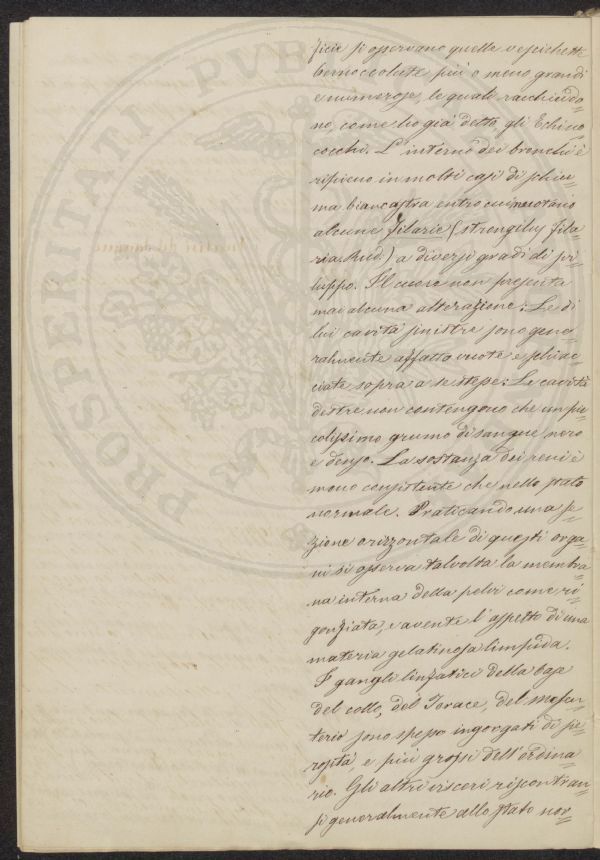 ficie si osservano quelle vescichette
bernoccolute più o meno grandi
e numerose, le quali racchiudo=
no, come ho già detto, gli Echino
cocchi. L'interno dei bronchi è
ripieno in molti casi di schiu=
ma biancastra entro cui notano
alcune filarie (strongilus fila=
ria Rud.) a diversi gradi di svi=
luppo. Il cuore non presenta
mai alcuna alterazione: Le di
lui cavità sinistre sono gene=
ralmente affatto vuote e schiac=
ciate sopra a se stesse: Le cavità
destre non contengono che un pic=
colissimo grumo di sangue nero
e denso. La sostanza dei reni è
meno consistente che nello stato
normale. Praticando una se=
zione orizzontale di questi orga=
ni si osserva talvolta la membra=
na interna della pelvi come ri=
gonfiata, e avente l'aspetto di una
materia gelatinosa limpida.
I gangli linfatici della base
del collo, del Torace, del mesen=
terio sono spesso ingorgati di sie=
rosità, e più grossi dell'ordina=
rio. Gli altri visceri riscontran=
si generalmente allo stato nor=
PROSPERITATI PUBL